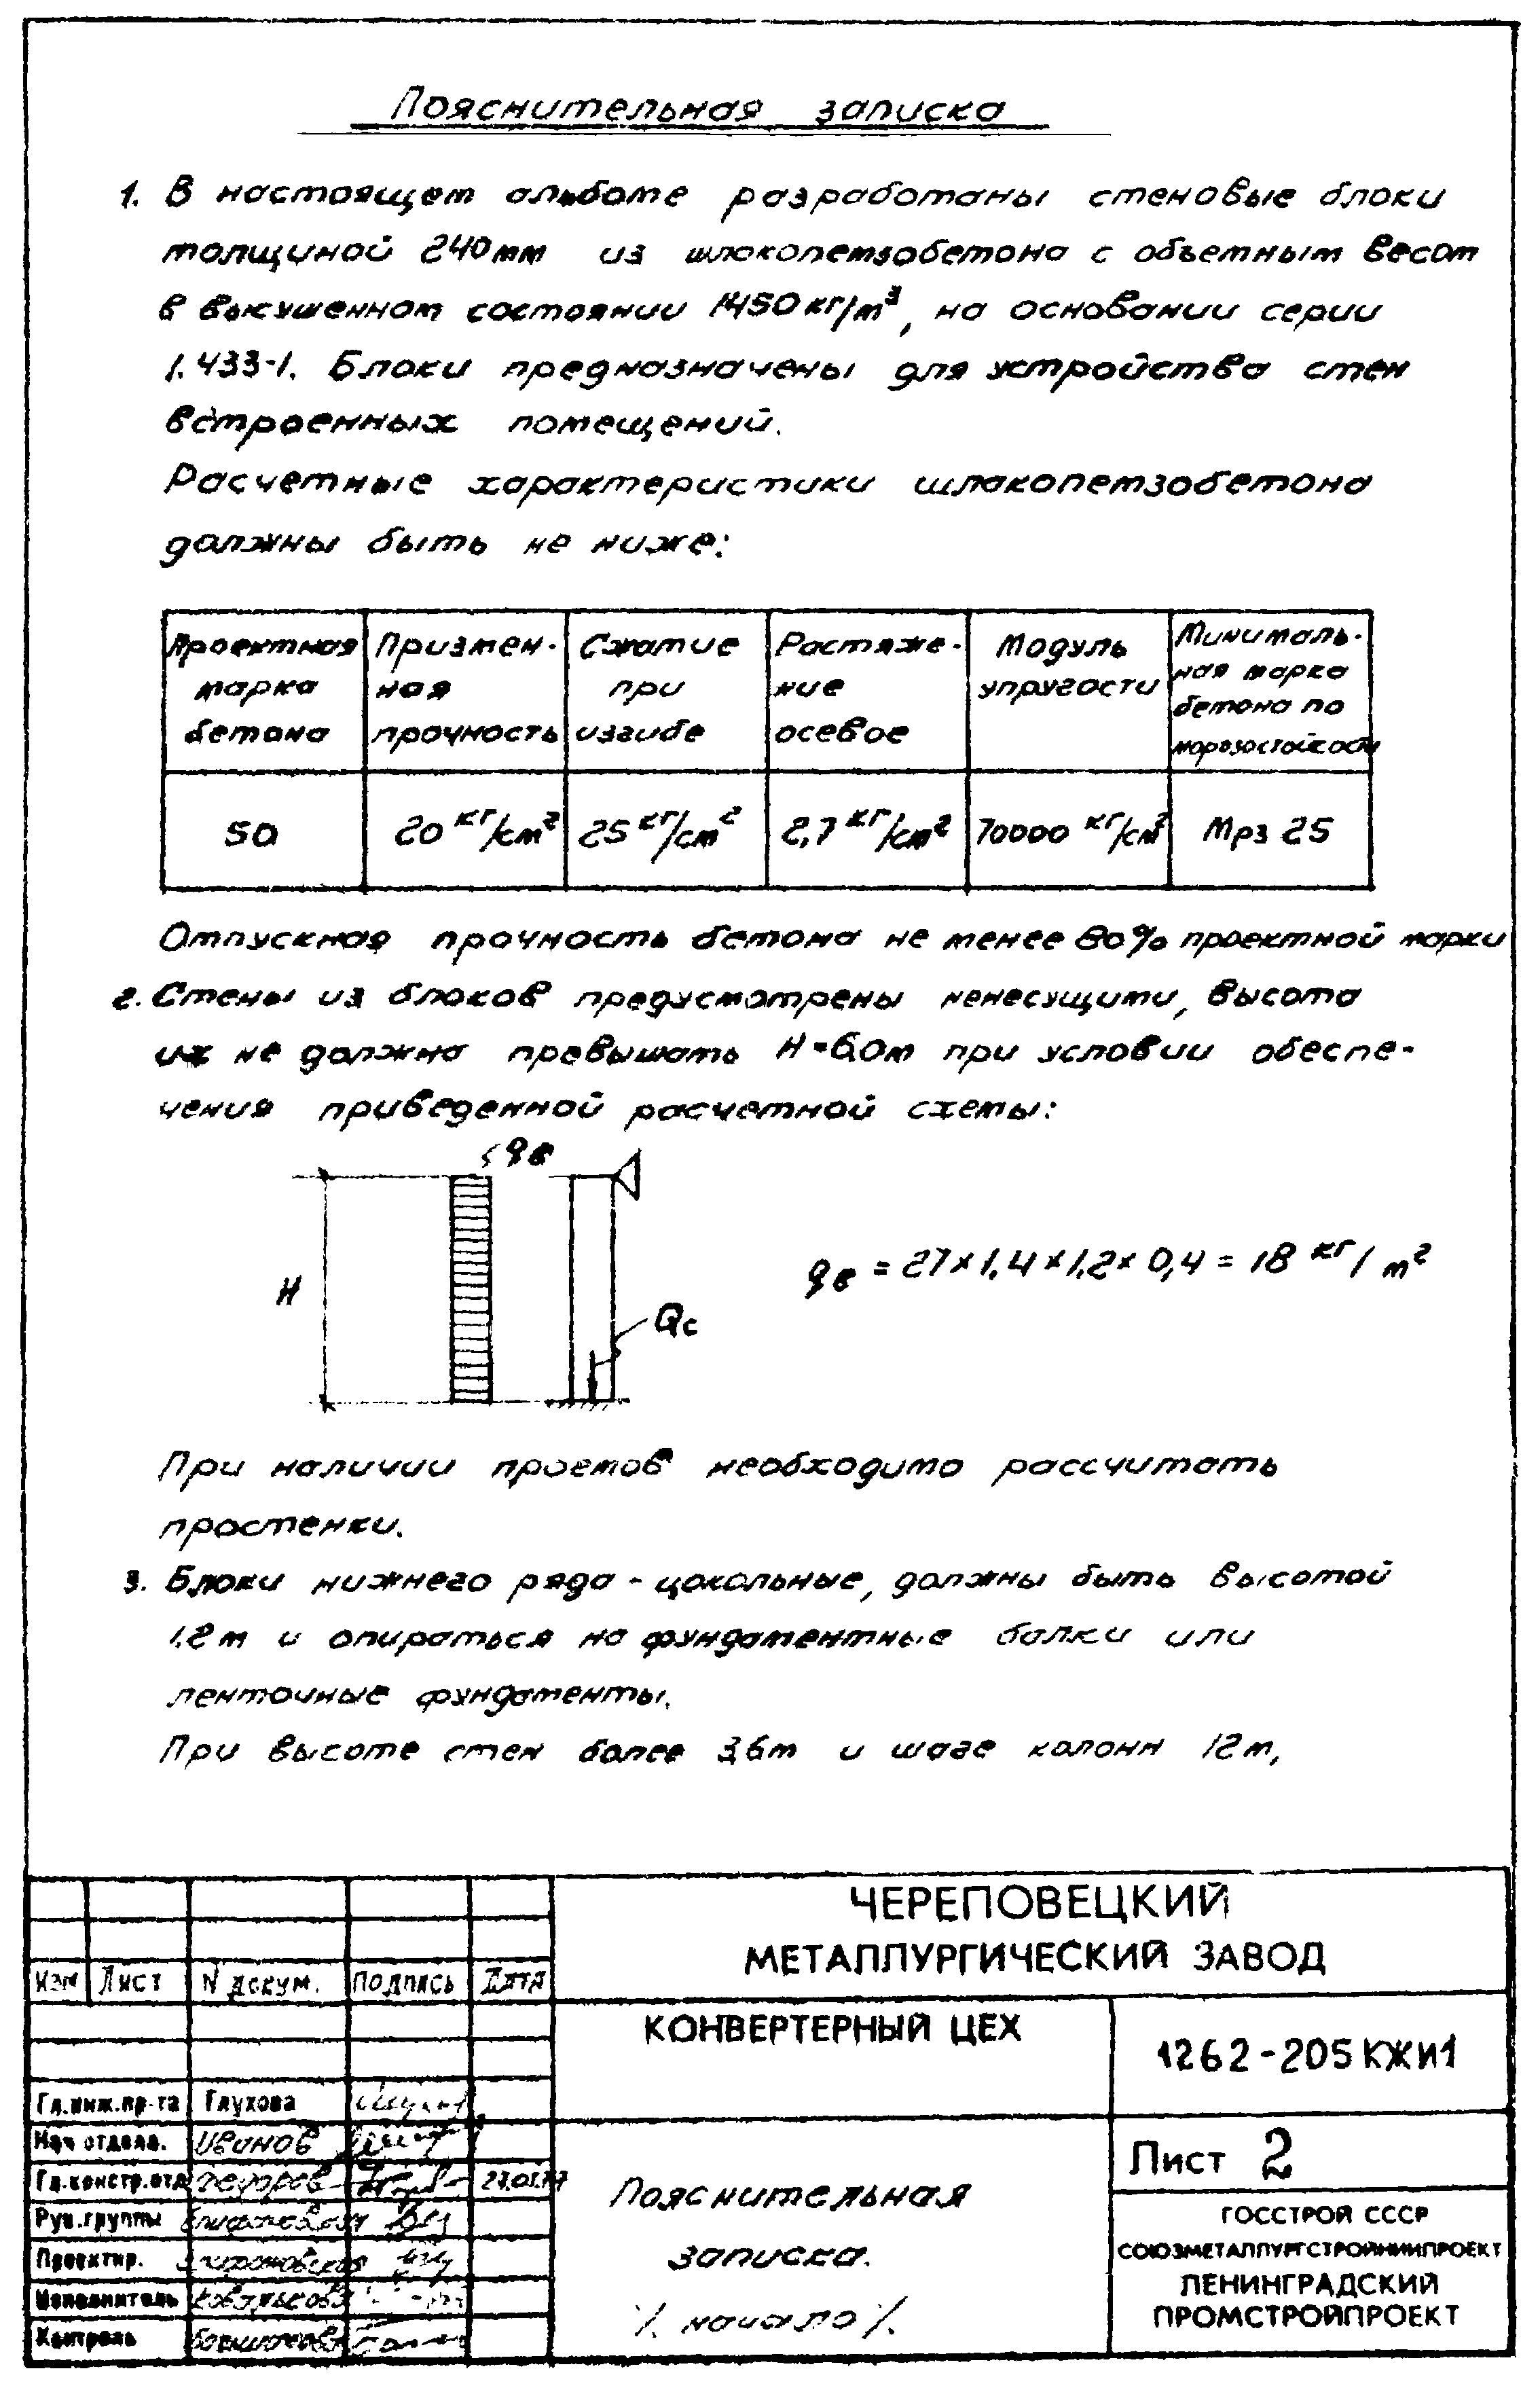 Пояснительная записка
1. В настоящем альбоме разработаны стеновые блоки
толщиной 240мм из шлакопемзобетона с объемным весом
в высушенном состоянии 1450кг/м³, на основании серии
1.433-1. Блоки предназначены для устройства стен
встроенных помещений.
Расчетные характеристики шлакопемзобетона
должны быть не ниже:
Проектная марка бетона
Призмен-ная прочность
Сжатие при изгибе
Растяже-ние осевое
Модуль упругости
Минималь-ная марка бетона по морозостойкости
50
20 кг/см²
25 кг/см²
2,7 кг/см²
70000 кг/см²
Мрз 25
Отпускная прочность бетона не менее 80% проектной марки
2. Стены из блоков предусмотрены ненесущими, высота
их не должна превышать H=6.0м при условии обеспе-
чения приведенной расчетной схемы:
qв
H
Qс
qв = 27×1,4×1,2×0,4 = 18 кг/м²
При наличии проемов необходимо рассчитать
простенки.
3. Блоки нижнего ряда - цокольные, должны быть высотой
1.2м и опираться на фундаментные балки или
ленточные фундаменты.
При высоте стен более 3,6м и шаге колонн 12м,
ЧЕРЕПОВЕЦКИЙ
МЕТАЛЛУРГИЧЕСКИЙ ЗАВОД
Изм Лист N докум. Подпись Дата
КОНВЕРТЕРНЫЙ ЦЕХ
1262-205КЖИ1
Гл.инж.пр-та Глухова
Нач отдела. Иванов
Гл.констр.отд Федоров
Рук.группы
Проектир.
Исполнитель
Контроль
Пояснительная
записка.
/. начало /.
Лист 2
ГОССТРОЙ СССР
СОЮЗМЕТАЛЛУРГСТРОЙНИИПРОЕКТ
ЛЕНИНГРАДСКИЙ
ПРОМСТРОЙПРОЕКТ